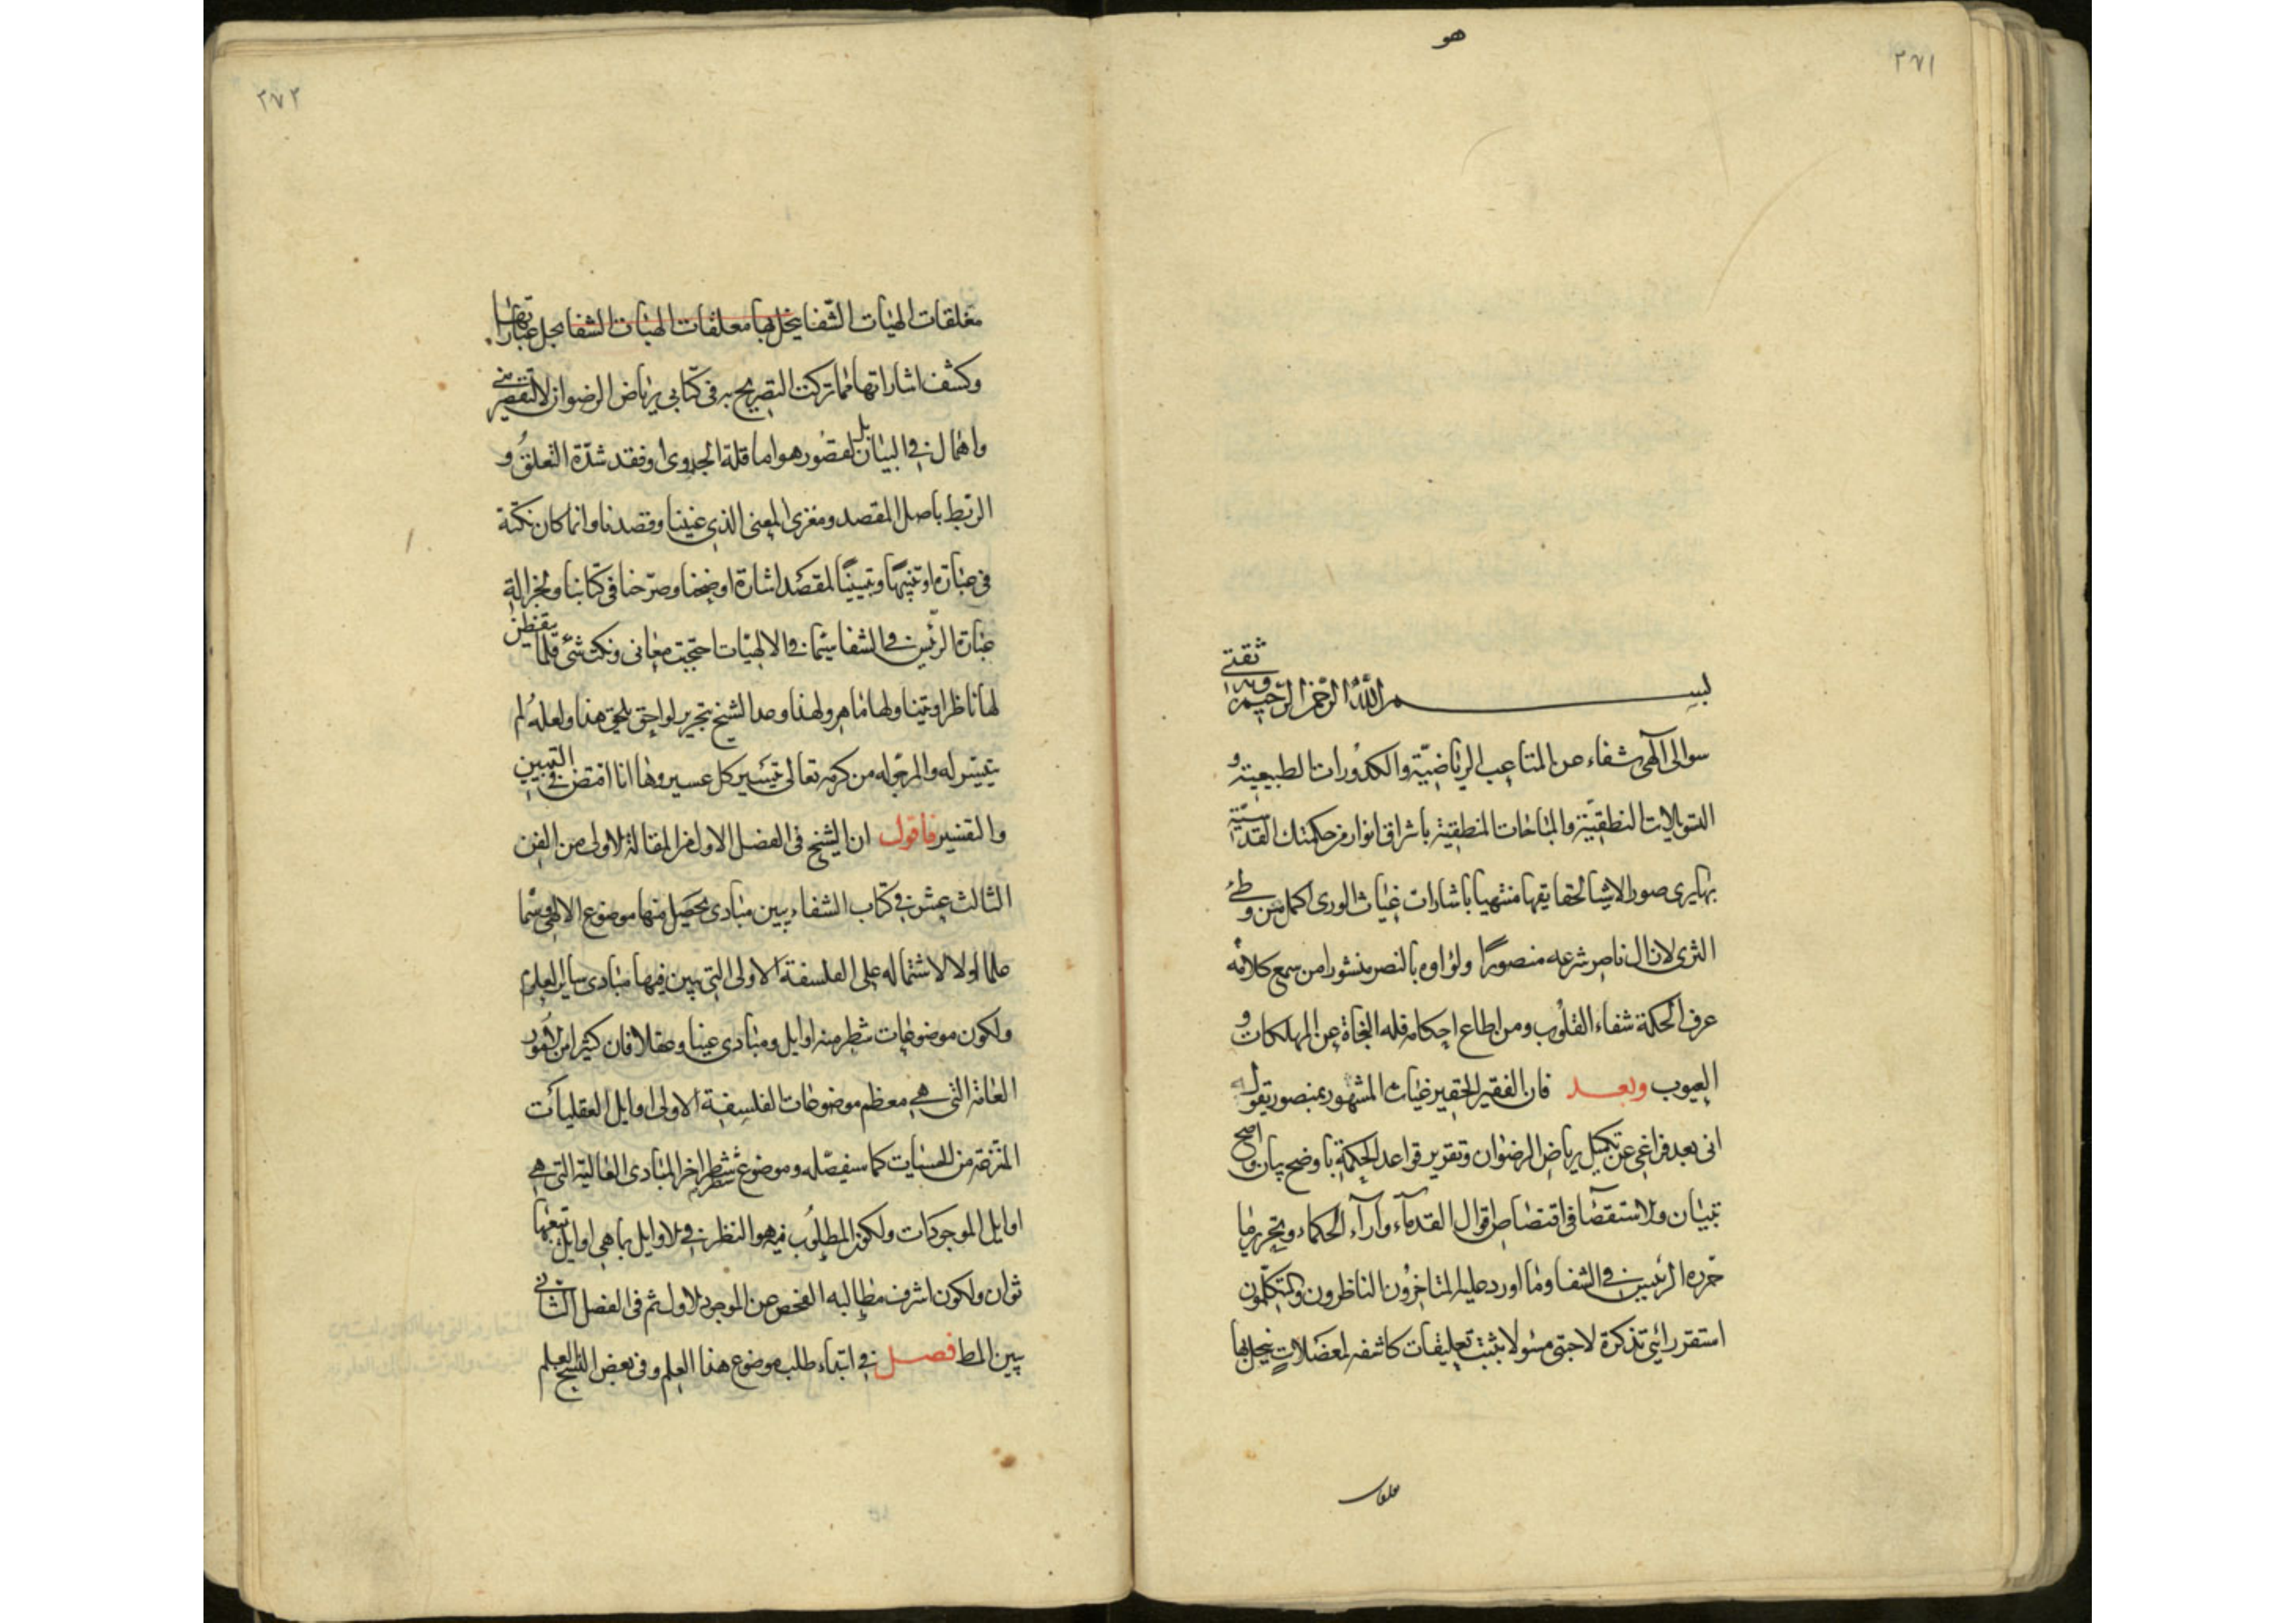 هو
٢٧١
بسم الله الرحمن الرحيم وبه ثقتي
سوالى آلهى شفاء عن المتاعب الرياضيّة والكدورات الطبيعيّة و
التسويلات النطقيّة والمباحات المنطقية باشراق انوار من حكمتك القدسيّة
بها يرى صور الاشيا لحقايقها منتهيا باشارات غياث الورى اكمل من وطئ
الثرى لا زال ناصر شرعه منصورًا ولواوه بالنصر منشورا من سمع كلامه
عرف الحكمة شفاء القلوب ومن اطاع احكامه فله النجاة عن المهلكات و
العيوب وبعد فان الفقير الحقير غياث المشهور بمنصور يقول
انى بعد فراغى عن تكميل رياض الرضوان وتقرير قواعد الحكمة باوضح بيان واصح
تبيان والاستقصآ فى اقتصاص اقوال القدمآء وآرآء الحكماء وتحرير ما
حرّره الرئيس فى الشفا وما اورد عليه المتاخرون الناظرون والمتكلمون
استقر رائي تذكرة لاحبتى مسئولا بثبت تعليقات كاشفه لمعضلات ينحل بها
معلقات
٢٧٢
مغلقات الهيات الشفا ينحل بها معلقات الهيات الشفا بحل عباراتها
وكشف اشاراتها مما تركت التصريح به فى كتابى رياض الرضوان لا لتقصير منى
واهمال فى البيان بل لقصور هو اما قلة الجدوى او فقد شدّة التعلق و
الربط باصل المقصد ومغزى المعنى الذى عنينا وقصدنا وانما كان نكتة
فى عبارة او تنبيهًا وتبيينًا لمقصد اشارة اوضحنا وصرّحنا فى كتابنا ولجزالة
عبارة الرئيس فى الشفا سيّما فى الالهيّات احتجبت معانى ونكت شتّى قلّما يتفطن
لها ناظر او يتناولها ماهر ولهذا وعد الشيخ بتحرير لواحق يلحق هذا ولعله لم
يتيسّر له والمرجوّ له من كرمه تعالى تيسير كل عسير وها انا افتض فى التبيين
والتفسير فاقول ان الشيخ فى الفصل الاول من المقالة الاولى من الفن
الثالث عشر فى كتاب الشفاء يبين مبادى يحصل منها موضوع الالهى وسمّا
علما اولا لاشتماله على الفلسفة الاولى التى يبين فيها مبادى ساير العلوم
ولكون موضوعات شطر منه اوايل ومبادى عينا وعقلا فان كثيرا من الامور
العامة التى هى معظم موضوعات الفلسفة الاولى اوايل العقليات
المنتزعة من الحسيات كما سيفصّله وموضوع شطر اخر المبادى العالية التى هى
اوايل الموجودات ولكون المطلوب فيه هو النظر فى الاوايل بما هى اوايل تتبعها
ثوان ولكون اشرف مطالبه الفحص عن الموجود الاول ثم فى الفصل الثانى
يبين المط فصل فى ابتداء طلب موضوع هذا العلم وفى بعض النسخ العلم